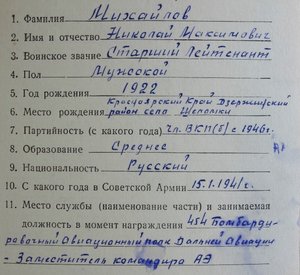 1. Фамилия Михайлов
2. Имя и отчество Николай Максимович
3. Воинское звание Старший Лейтенант
4. Пол Мужской
5. Год рождения 1922
Красноярский Край Дзержинский
6. Место рождения район села Шеломки
7. Партийность (с какого года) Чл. ВКП(б) с 1946г.
8. Образование Среднее
9. Национальность Русский
10. С какого года в Советской Армии 15.1.1941г.
11. Место службы (наименование части) и занимаемая
должность в момент награждения 454 Бомбарди-
ровочный Авиационный полк Дальней Авиации
- Заместитель командира АЭ